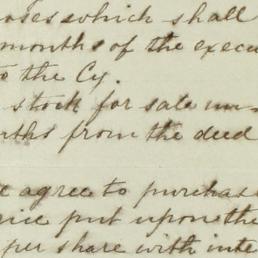 oses which shall
months of the execu
to the Cy.
stock for sale un-
nths from the deed
e agree to purchas
rice put upon the
per share with inte